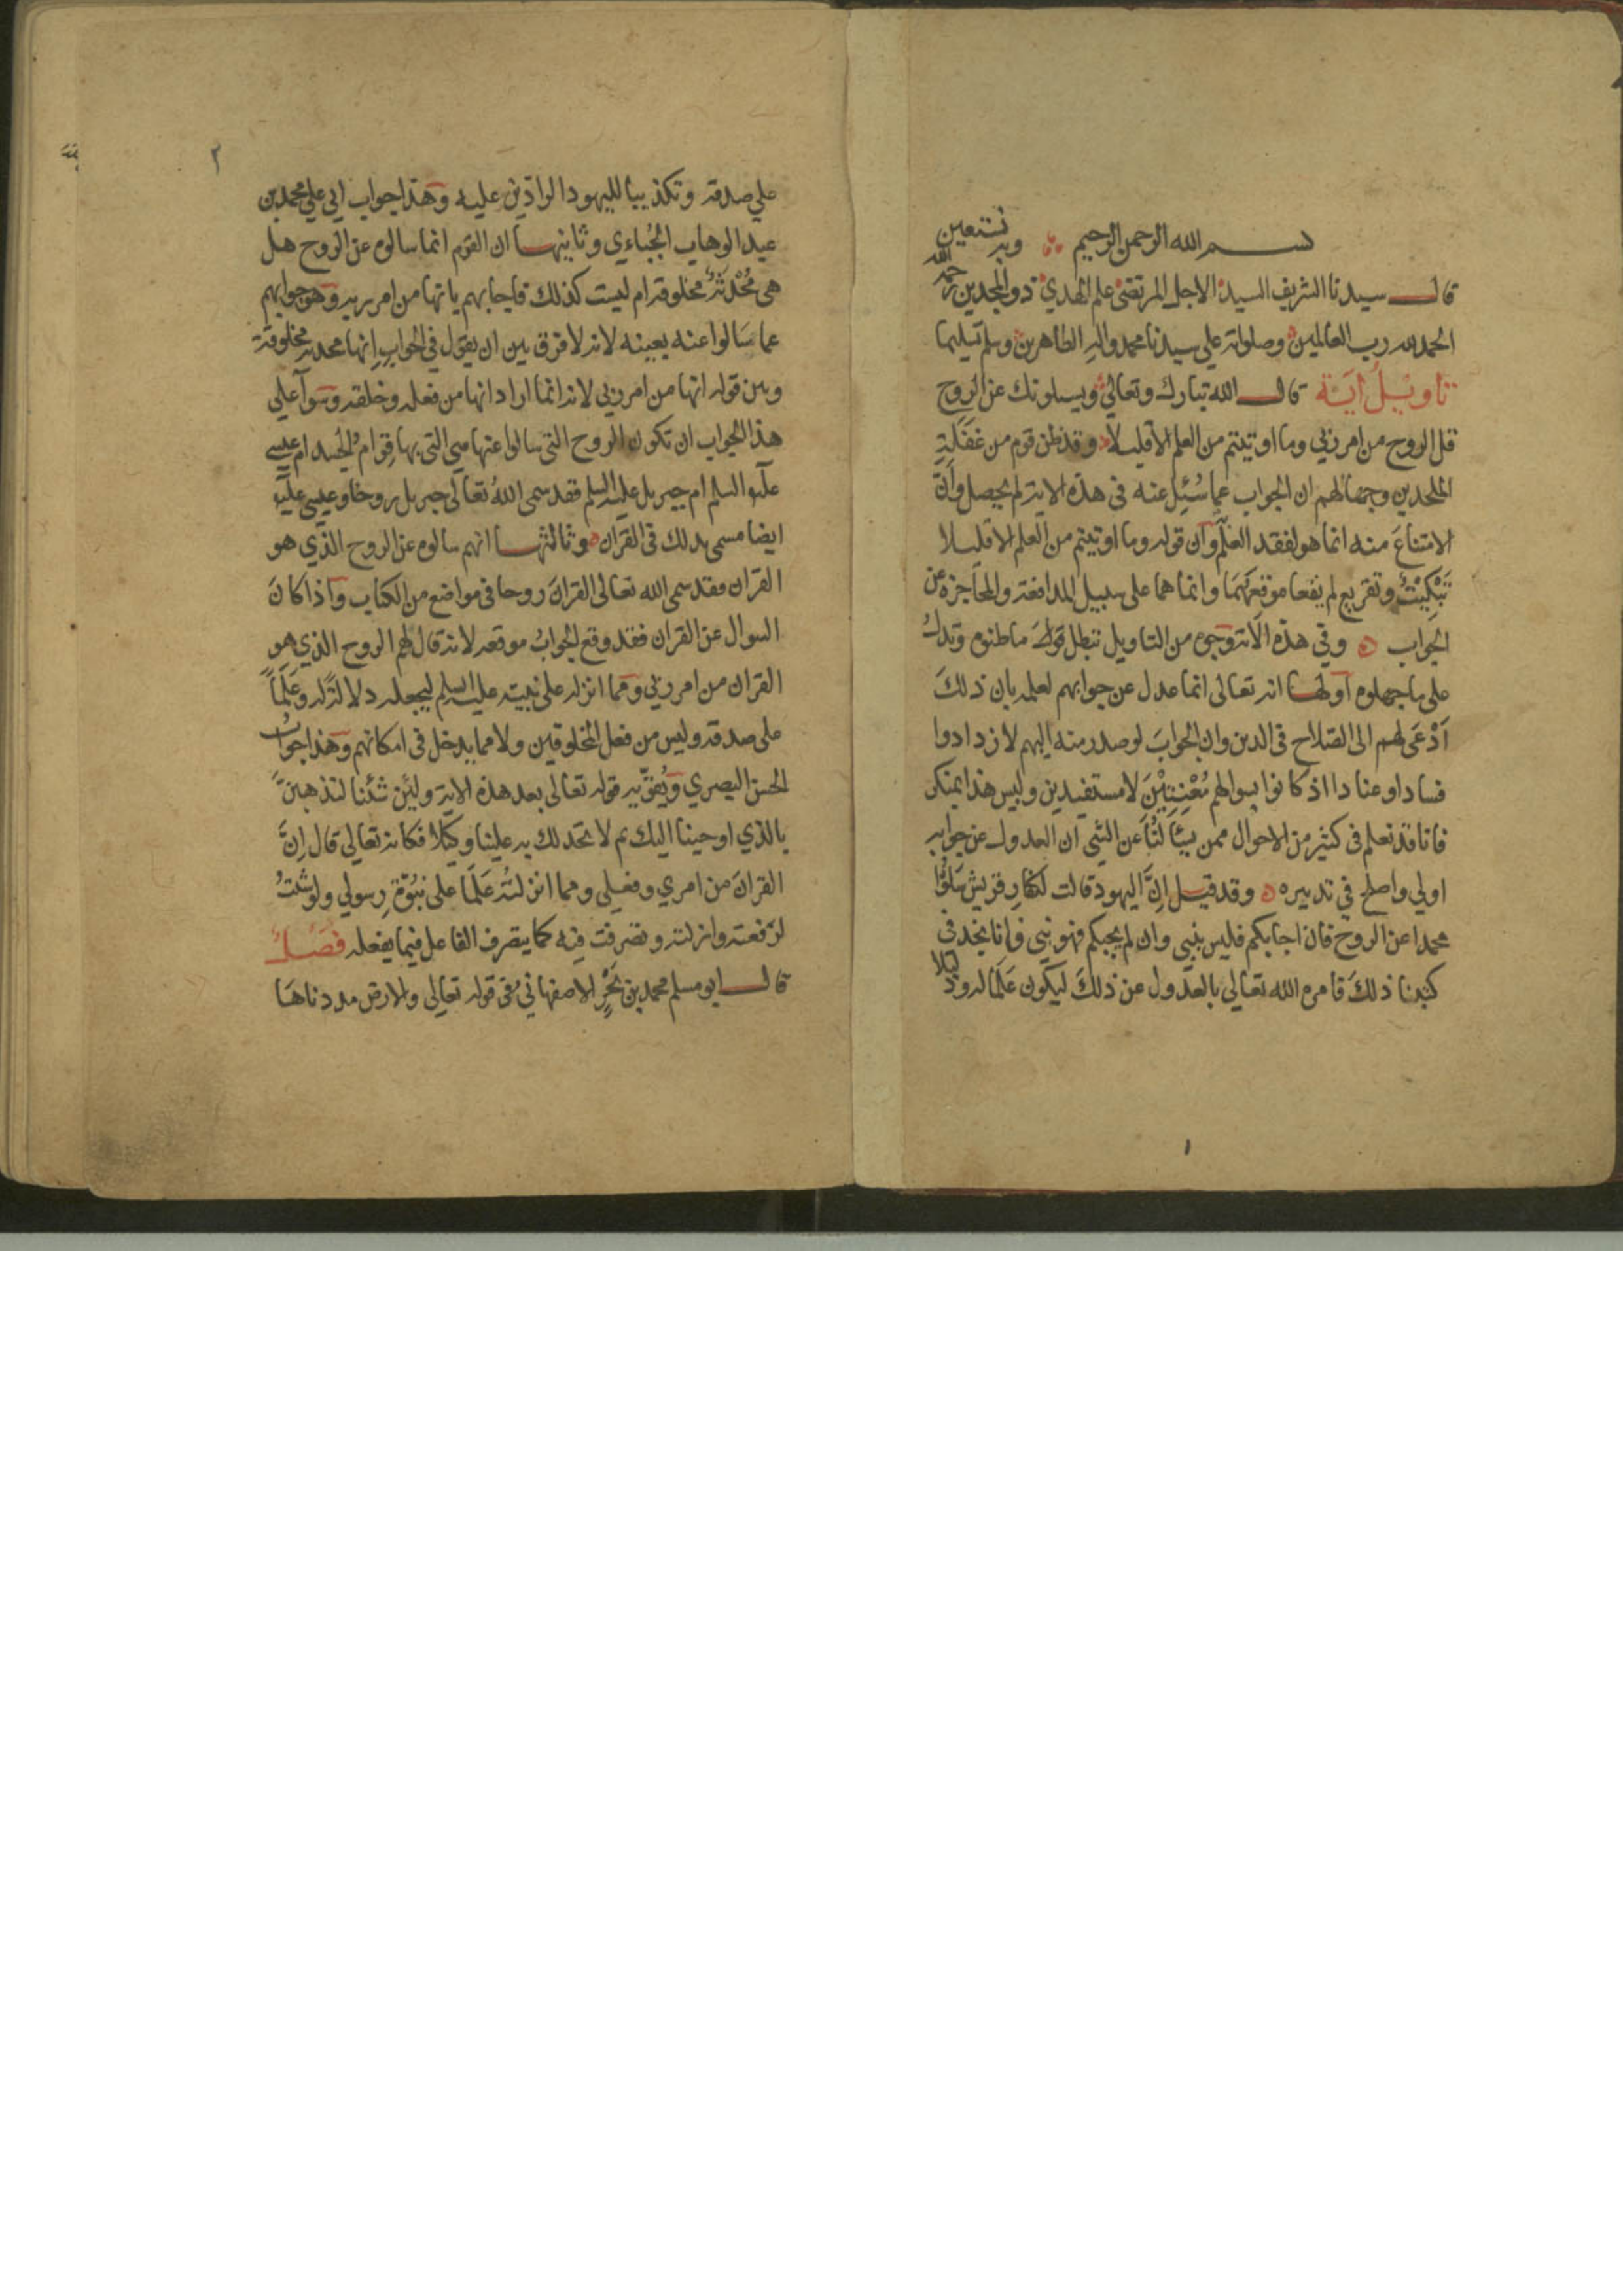 بسم الله الرحمن الرحيم وبه نستعين
قال سيدنا الشريف السيد الاجل المرتضى علم الهدي ذو المجدين رحمه الله
الحمد لله رب العالمين وصلواته علي سيدنا محمد واله الطاهرين وسلم تسليما
تاويل اية قال الله تبارك وتعالي ويسلونك عن الروح
قل الروح من امر ربي وما اوتيتم من العلم الا قليلا وقد ظن قوم من غفلة
الملحدين وجهالهم ان الجواب عما سُئِل عنه في هذه الاية لم يحصل وانَّ
الامتناعَ منه انما هو لفقد العلم وان قوله وما اوتيتم من العلم الا قليلا
تَبْكِيْتٌ وتقريع لم يقعا موقعَهُمَا وانما هما على سبيل المدافعة والمحاجزة عن
الجواب وفي هذه الاية وجوه من التاويل تبطل ما ظنوه وتدلُّ
على ما جهلوه اولها انه تعالى انما عدل عن جوابهم لعلمه بان ذلكَ
اَدْعَى لهم الى الصّلاح في الدين وان الجوابَ لو صدر منه اليهم لازدادوا
فسادا وعنادا اذ كانوا بسوالهم مُعْنِتِيْنَ لا مستفيدين وليس هذا بمنكر
فانا قد نعلم في كثير من الاحوال ممن يسئالنا عن الشي ان العدول عن جوابه
اولي واصلح في تدبيره وقد قيل اِنَّ اليهود قالت لكفارِ قريش سَلُوا
محمدا عن الروح فان اجابكم فليس بنبي وان لم يجبكم فهو نبي فانا نجد في
كتبنا ذلكَ فامره الله تعالي بالعدول عن ذلكَ ليكون عَلَمًا له ودليلا
١
٢
علي صدقه وتكذيبا لليهود الرادّين عليه وهذا جواب ابي علي محمد بن
عبد الوهاب الجُبّاءي وثانيها ان القوم انما سالوه عن الروح هل
هي مُحْدَثَةٌ مخلوقة ام ليست كذلك فاجابهم بانها من امر ربه وهو جوابهم
عما سَالوا عنه بعينه لانه لا فرق بين ان يقول في الجواب اِنها محدثة مخلوقة
وبين قوله انها من امر ربي لانه انما اراد انها من فعله وخلقه وسوآ علي
هذا الجواب ان تكون الروح التي سالوا عنها هي التي بها قِوامُ الجسد ام عيسي
عليه السلم ام جبريل عليه السلم فقد سمى اللهُ تعالى جبريل روحا وعيسي عليه
ايضا مسمى بذلك في القران وثالثها انهم سالوه عن الروح الذي هو
القران فقد سمى الله تعالى القرانَ روحا في مواضع من الكتاب واذا كانَ
السوال عن القران فقد وقع الجوابُ موقعه لانه قال لهم الروح الذي هو
القران من امر ربي ومما انزله على نبيه عليه السلم ليجعله دلالةً له وعَلَمًا
على صدقه وليس من فعل المخلوقين ولا مما يدخل في امكانهم وهذا جوابُ
الحسن البصري ويُقوّيه قوله تعالى بعد هذه الاية ولئن شئنا لنذهبنَّ
بالذي اوحينا اليك ثم لا تجد لك به علينا وكيلا فكانه تعالي قال اِنَّ
القرانَ من امري وفعلي ومما انزلتُه عَلَمًا على نبُوّةِ رسولي ولو شئتُ
لرَفعته وازلته وتصرفت فيه كما يتصرف الفاعل فيما يفعله فصل
قال ابو مسلم محمد بن بَحْرٍ الاصفهاني في قوله تعالى والارض مددناها